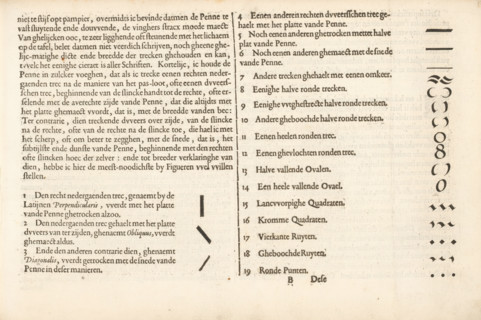 niet te stijf opt pampier, overmidts ic bevinde datmen de Penne te
vast sluytende ende douvvende, de vinghers straex moede maect.
Van ghelijcken ooc, te zeer ligghende oft steunende met het lichaem
op de tafel, belet datmen niet veerdich schrijven, noch gheene ghe-
lijc-matighe dicte ende breedde der trecken ghehouden en kan,
t'welc het eenighe cieraet is aller Schriften. Kortelijc, ic houde de
Penne in zulcker voeghen, dat als ic trecke eenen rechten neder-
gaenden trec na de maniere van het pas-loor, ofte eenen dvveers-
schen trec, beginnende van de slincke handt tot de rechte, ofte er-
selende met de averechte zijde vande Penne, dat die altijdts met
het platte ghemaect vvordt, dat is, met de breedde vanden bec:
Ter contrarie, dien treckende dvveers over zijde, van de slincke
na de rechte, ofte van de rechte na de slincke toe, die hael ic met
het scherp, oft om beter te zegghen, met de snede, dat is, het
subtijlste ende dunste vande Penne, beginnende met den rechten
ofte slincken hoec der zelver: ende tot breeder verklaringhe van
dien, hebbe ic hier de meest-noodichste by Figueren vvel vvillen
stellen.
1 Den recht nedergaenden trec, genaemt by de
Latijnen Perpendicularis, vverdt met het platte
vande Penne ghetrocken alzoo.
2 Den nedergaenden trec ghaelt met het platte
dvveers van ter zijden, ghenaemt Obliquus, vverdt
ghemaect aldus.
3 Ende den anderen contrarie dien, ghenaemt
Diagonalis, vverdt getrocken met de snede van de
Penne in deser manieren.
4 Eenen anderen rechten dvveersschen trec ge-
haelt met het platte vande Penne.
5 Noch eenen anderen ghetrocken metter halve
plat vande Penne.
6 Noch eenen anderen ghemaect met de snede
vande Penne.
7 Andere trecken ghehaelt met eenen omkeer.
8 Eenighe halve ronde trecken.
9 Eenighe vvtghestrecte halve ronde trecken.
10 Andere gheboochde halve ronde trecken.
11 Eenen heelen ronden trec.
12 Eenen ghevlochten ronden trec.
13 Halve vallende Ovalen.
14 Een heele vallende Ovael.
15 Lancvvorpighe Quadraten.
16 Kromme Quadraten.
17 Vierkante Ruyten.
18 Gheboochde Ruyten.
19 Ronde Punten.
B Dese